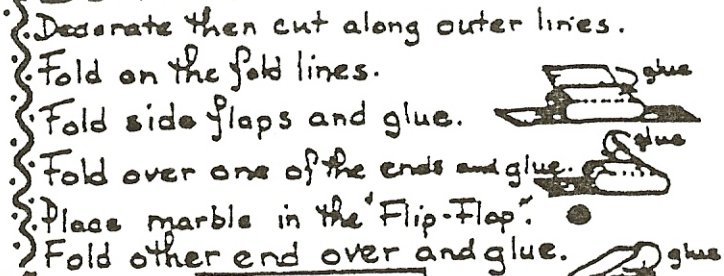 Decorate then cut along outer lines.
Fold on the fold lines.
glue
Fold side flaps and glue.
glue
Fold over one of the ends and glue.
Place marble in the "Flip-Flap".
Fold other end over and glue.
glue